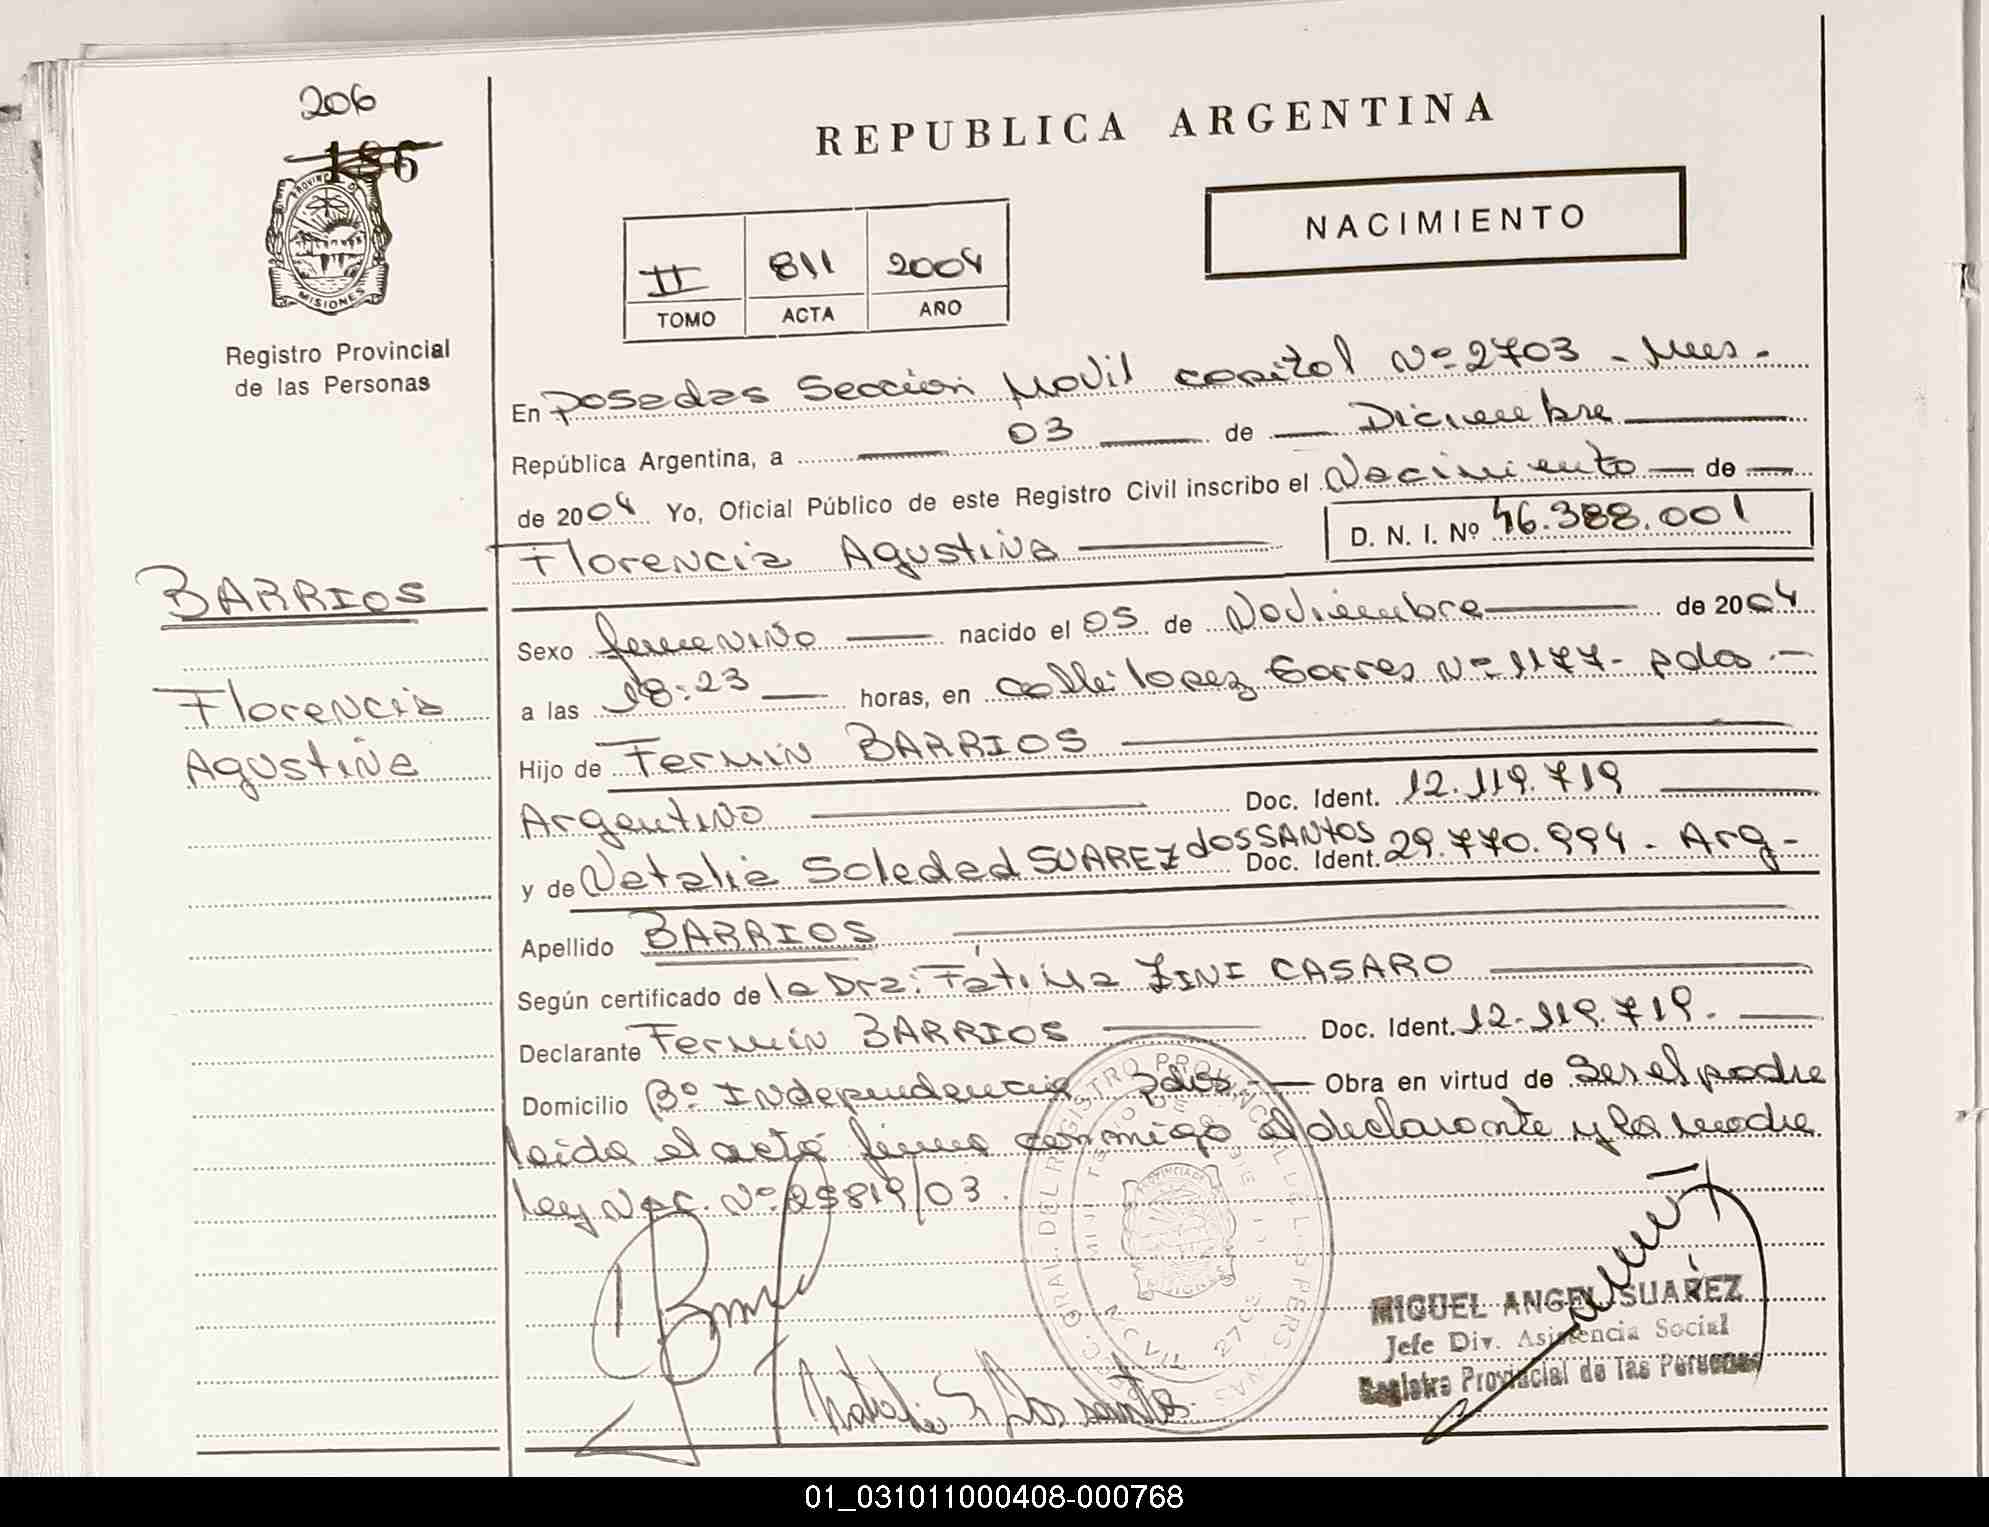 206
186
PROVINCIA DE
MISIONES
Registro Provincial
de las Personas
REPUBLICA ARGENTINA
NACIMIENTO
II 811 2004
TOMO ACTA AÑO
En Posadas Sección Movil capital Nº 2703 - Mnes -
República Argentina, a 03 de Diciembre
de 2004 Yo, Oficial Público de este Registro Civil inscribo el Nacimiento de
Florencia Agustina D. N. I. Nº 46.388.001
BARRIOS
Florencia
Agustina
Sexo femenino nacido el 05 de Noviembre de 2004
a las 18:23 horas, en calle: Lopez Torres Nº 1177 - Pdas. -
Hijo de Fermin BARRIOS
Argentino Doc. Ident. 12.119.719
y de Natalia Soledad SUAREZ dos SANTOS Doc. Ident. 29.770.994 - Arg -
Apellido BARRIOS
Según certificado de la Dra: Fátima ZINI CASARO
Declarante Fermin BARRIOS Doc. Ident. 12.119.719.
Domicilio Bº Independencia Pdas. Obra en virtud de Ser el padre
leida el acta firma conmigo el declarante y la madre
Ley Nac. Nº 25819/03.
Natalia S Dos santos
MIGUEL ANGEL SUAREZ
Jefe Div. Asistencia Social
Registro Provincial de las Personas
01_031011000408-000768